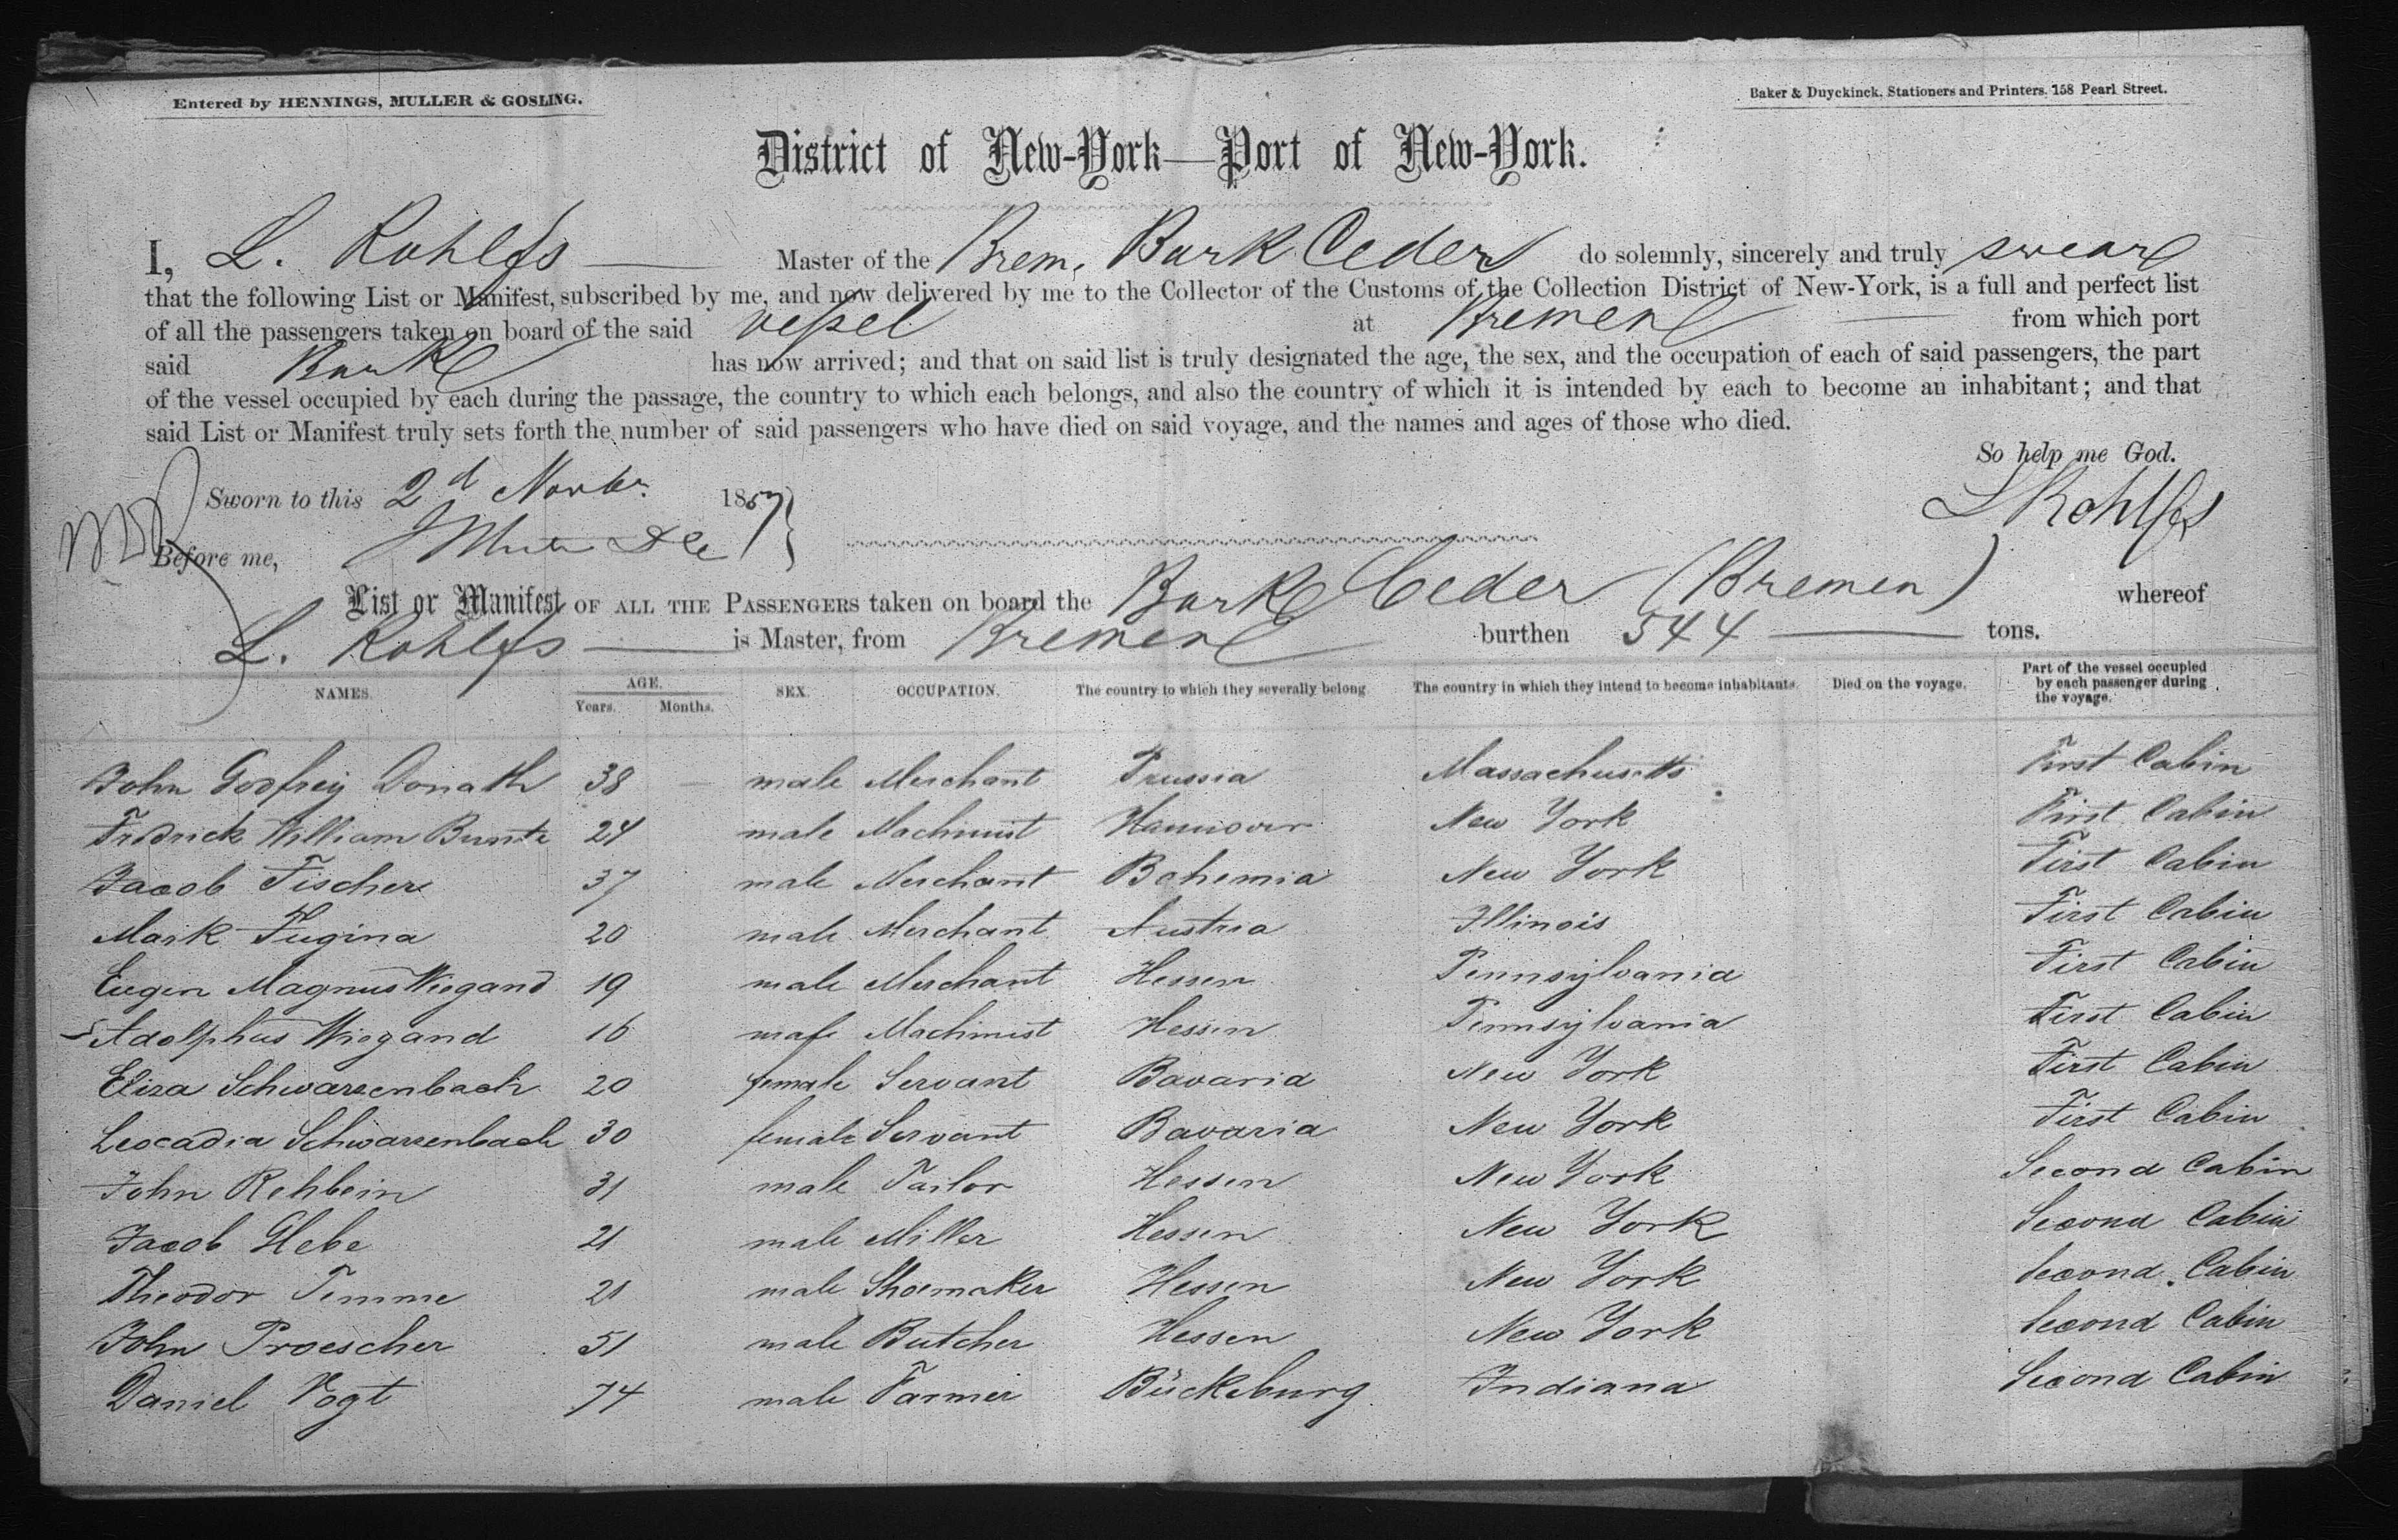 Entered by HENNINGS, MULLER & GOSLING.
Baker & Duyckinck, Stationers and Printers, 158 Pearl Street.
District of New-York—Port of New-York.
I, L. Rohlfs Master of the Brem. Bark Ceder do solemnly, sincerely and truly swear
that the following List or Manifest, subscribed by me, and now delivered by me to the Collector of the Customs of the Collection District of New-York, is a full and perfect list
of all the passengers taken on board of the said vessel at Bremen from which port
said Bark has now arrived; and that on said list is truly designated the age, the sex, and the occupation of each of said passengers, the part
of the vessel occupied by each during the passage, the country to which each belongs, and also the country of which it is intended by each to become an inhabitant; and that
said List or Manifest truly sets forth the number of said passengers who have died on said voyage, and the names and ages of those who died.
So help me God.
Sworn to this 2d Novbr. 1857 } L Rohlfs
Before me,
List or Manifest OF ALL THE PASSENGERS taken on board the Bark Ceder (Bremen) whereof
L. Rohlfs is Master, from Bremen burthen 544 tons.
NAMES. AGE. Years. Months. SEX. OCCUPATION. The country to which they severally belong. The country in which they intend to become inhabitants. Died on the voyage. Part of the vessel occupied by each passenger during the voyage.
John Godfrey Donath 38 — male Merchant Prussia Massachusetts First Cabin
Fredrick William Bunte 24 male Machinist Hannover New York First Cabin
Jacob Fischer 37 male Merchant Bohemia New York First Cabin
Mark Fugina 20 male Merchant Austria Illinois First Cabin
Eugen Magnus Wiegand 19 male Merchant Hessen Pennsylvania First Cabin
Adolphus Wiegand 16 male Machinist Hessen Pennsylvania First Cabin
Eliza Schwarzenbach 20 female Servant Bavaria New York First Cabin
Leocadia Schwarzenbach 30 female Servant Bavaria New York First Cabin
John Rehbein 31 male Tailor Hessen New York Second Cabin
Jacob Glebe 21 male Miller Hessen New York Second Cabin
Theodor Temme 21 male Shoemaker Hessen New York Second Cabin
John Proescher 51 male Butcher Hessen New York Second Cabin
Daniel Vogt 74 male Farmer Bückeburg Indiana Second Cabin